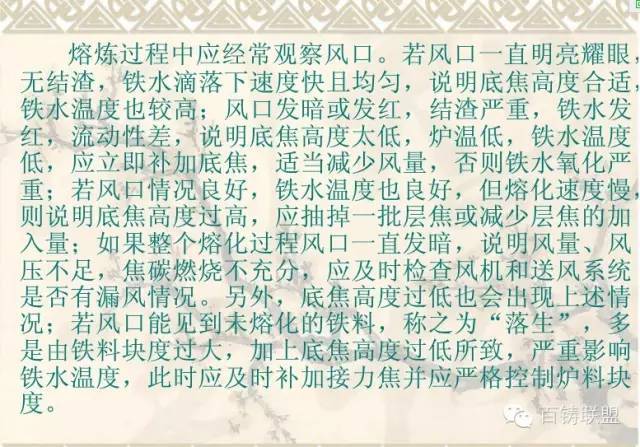 熔炼过程中应经常观察风口。若风口一直明亮耀眼，
无结渣，铁水滴落下速度快且均匀，说明底焦高度合适，
铁水温度也较高；风口发暗或发红，结渣严重，铁水发
红，流动性差，说明底焦高度太低，炉温低，铁水温度
低，应立即补加底焦，适当减少风量，否则铁水氧化严
重；若风口情况良好，铁水温度也良好，但熔化速度慢，
则说明底焦高度过高，应抽掉一批层焦或减少层焦的加
入量；如果整个熔化过程风口一直发暗，说明风量、风
压不足，焦碳燃烧不充分，应及时检查风机和送风系统
是否有漏风情况。另外，底焦高度过低也会出现上述情
况；若风口能见到未熔化的铁料，称之为“落生”，多
是由铁料块度过大，加上底焦高度过低所致，严重影响
铁水温度，此时应及时补加接力焦并应严格控制炉料块
度。
百铸联盟